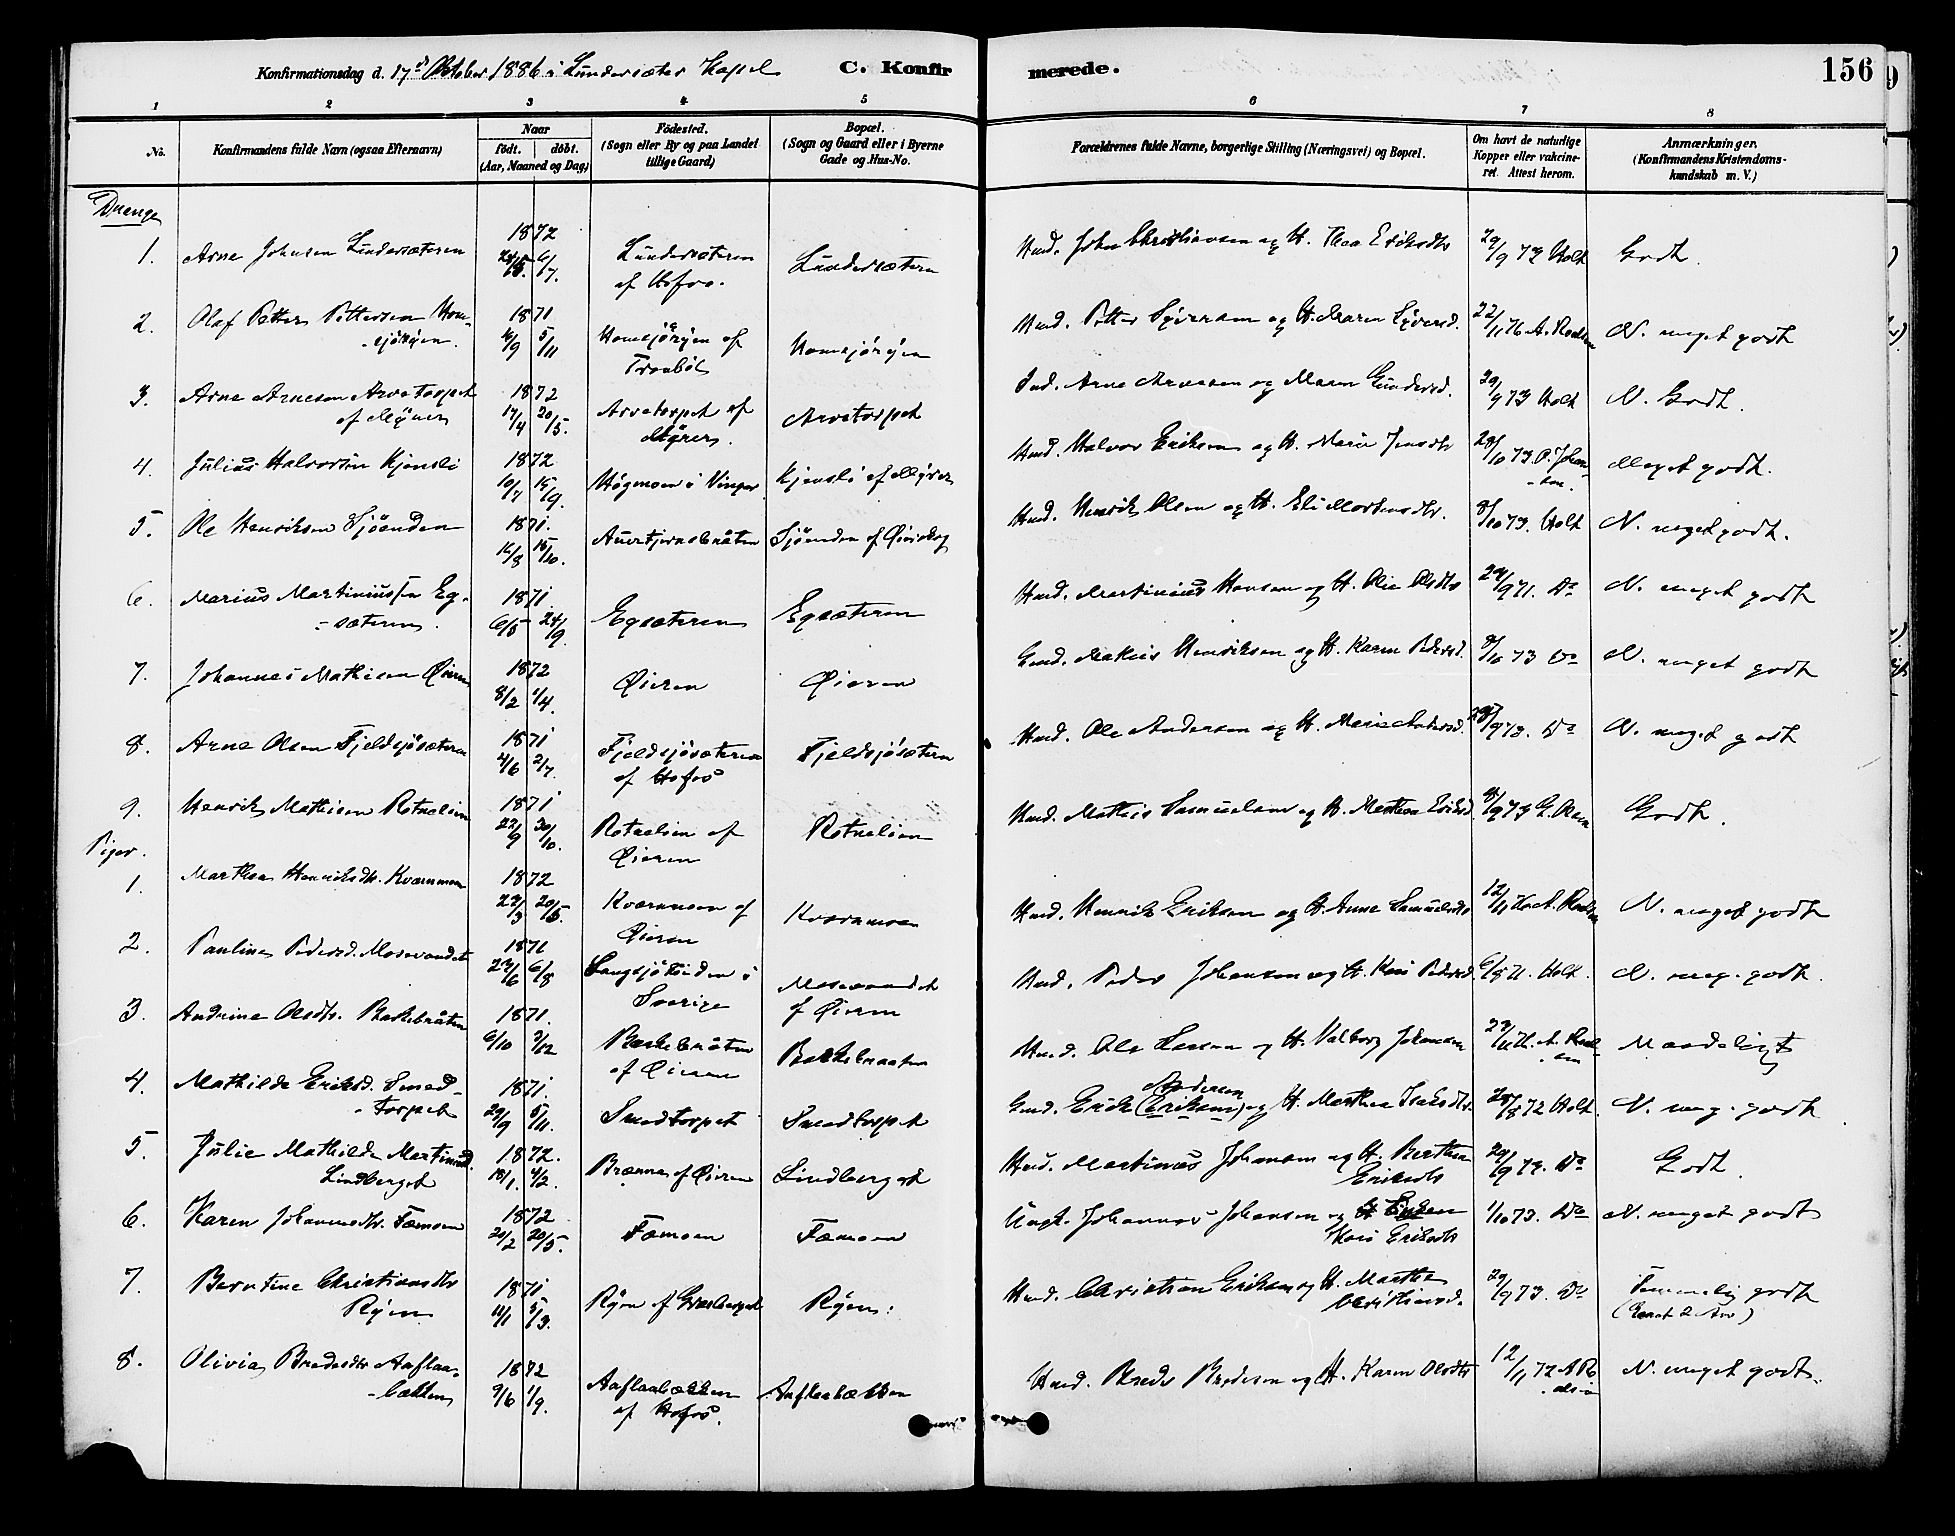 Konfirmationsdag d. 17d Oktober 1886 i Lundersæter Kapel C. Konfirmerede. 156
1 2 3 4 5 6 7 8
No. Konfirmandens fulde Navn (ogsaa Efternavn) Naar födt. döbt. (Aar, Maaned og Dag) Födested. (Sogn eller By og paa Landet tillige Gaard) Bopæl. (Sogn og Gaard eller i Byerne Gade og Hus-No. Forældrenes fulde Navne, borgerlige Stilling (Næringsvei) og Bopæl. Om havt de naturlige Kopper eller vakcineret. Attest herom. Anmærkninger. (Konfirmandens Kristendomskundskab m. V.)
Drenge
1. Arne Johnsen Lundersæteren 1872 6/7. Lundersæteren af Hofos. Lundersæteren Hmd. John Christiansen og H. Thea Eriksdtr 29/9 73 Holt Godt.
2. Olaf Petter Pettersen Homsjörÿen. 1871 16/9 5/11 Homsjörÿen af Tronböl Homsjörÿen Hmd. Petter Syversen og H. Maren Syversd. 22/11 76 A. Rodsen N. meget godt
3. Arne Arnesen Arvetorpet af Myrer 1872 17/4 20/5. Arvetorpet af Myrer. Arvetorpet Ind. Arne Arnesen og Maren Gundersd. 29/9 73 Holt N. Godt.
4. Julius Halvorsen Kjensli 1872 10/7 15/9. Högmoen i Vinger Kjensli af Myrer Hmd. Halvor Eriksen og H. Marie Jensdtr 28/10 73 O. Johansen. Meget godt.
5. Ole Henriksen Sjöenden 1871. 16/8 15/10. Auertjernsbråten Sjöenden af Öieskog Hmd. Henrik Olsen og H. Eli Mortensdtr. 8/10 73. Holt N. meget godt.
6. Marius Martiniussen Egsæteren. 1871. 6/5 24/9. Egsæteren Egsæteren Hmd. Martinius Hansen og H. Olia Olsdtr 24/9 71. Do N. meget godt
7. Johannes Mathisen Öieren 1872 8/2 1/4. Öieren Öieren Gmd. Mathis Henriksen og H. Karen Pedersd. 8/10 73 Do N. meget godt
8. Arne Olsen Fjeldsjösæteren 1871 4/6 2/7. Fjeldsjösæteren af Hofos Fjeldsjösæteren Hmd. Ole Andersen og H. Marie 28/9 73. Do N. meget godt
9. Henrik Mathisen Rotnelien 1871 22/9 30/10. Rotnelien af Öieren Rotnelien Hmd. Mathis Samuelsen og H. Marthea Eriksd. 8/9 73 G. Olsen Godt.
Piger.
1. Marthea Henriksdtr. Kværnmoen 1872 22/3 20/5. Kværnmoen af Öieren Kværnmoen Hmd. Henrik Eriksen og H. Anne Samuelsdtr 12/11 76 A. Rodsen N. meget godt
2. Pauline Pedersd. Mosevandet 1871 6/8 Langsjötriden i Sverige Mosevandet af Öieren Hmd. Peder Johansen og H. Kari Pedersd. 6/8 71. Holt. N. meg. godt.
3. Andrine Olsdtr. Baskebråten 1871. 6/10 3/12 Baskebråten af Öieren Baskebraaten Hmd. Ole Larsen og H. Valborg Johansen 22/11 76. A. Rodsen Maadeligt
4. Mathilde Eriksd. Smedtorpet 1871. 29/9 5/11. Smedtorpet Smedtorpet Gmd. Erik (Eriksen) Andersen og H. Marthea Isaksdtr. 28/8 72 Holt. N. meg. godt
5. Julie Mathilde Martinusd. Lindberget 1872. 18/1. 4/2. Brænna af Öieren Lindberget Hmd. Martinus Johansen og H. Berthea Eriksdtr 29/9 73. Do Godt.
6. Karen Johannesdtr. Fæmoen 1872 20/2 20/5. Fæmoen Fæmoen Ungk. Johannes Johansen og Kari Eriksdtr 1/10 73. Do N. meget godt
7. Berntine Christiansdtr Rÿen 1871 11/1 5/3. Rÿen af Grasberget Rÿen. Hmd. Christian Eriksen og H. Marthea Christiansd. 29/9 73. Do Temmelig godt (Læst 2 Aar)
8. Olivia Bredesdtr Aaflaabækken 1872 9/6 1/9. Aaflaabækken af Hofos. Aaflaabækken Hmd. Brede Bredesen og H. Karen Olsdtr 12/11 72 A. Rodsen N. meget godt.